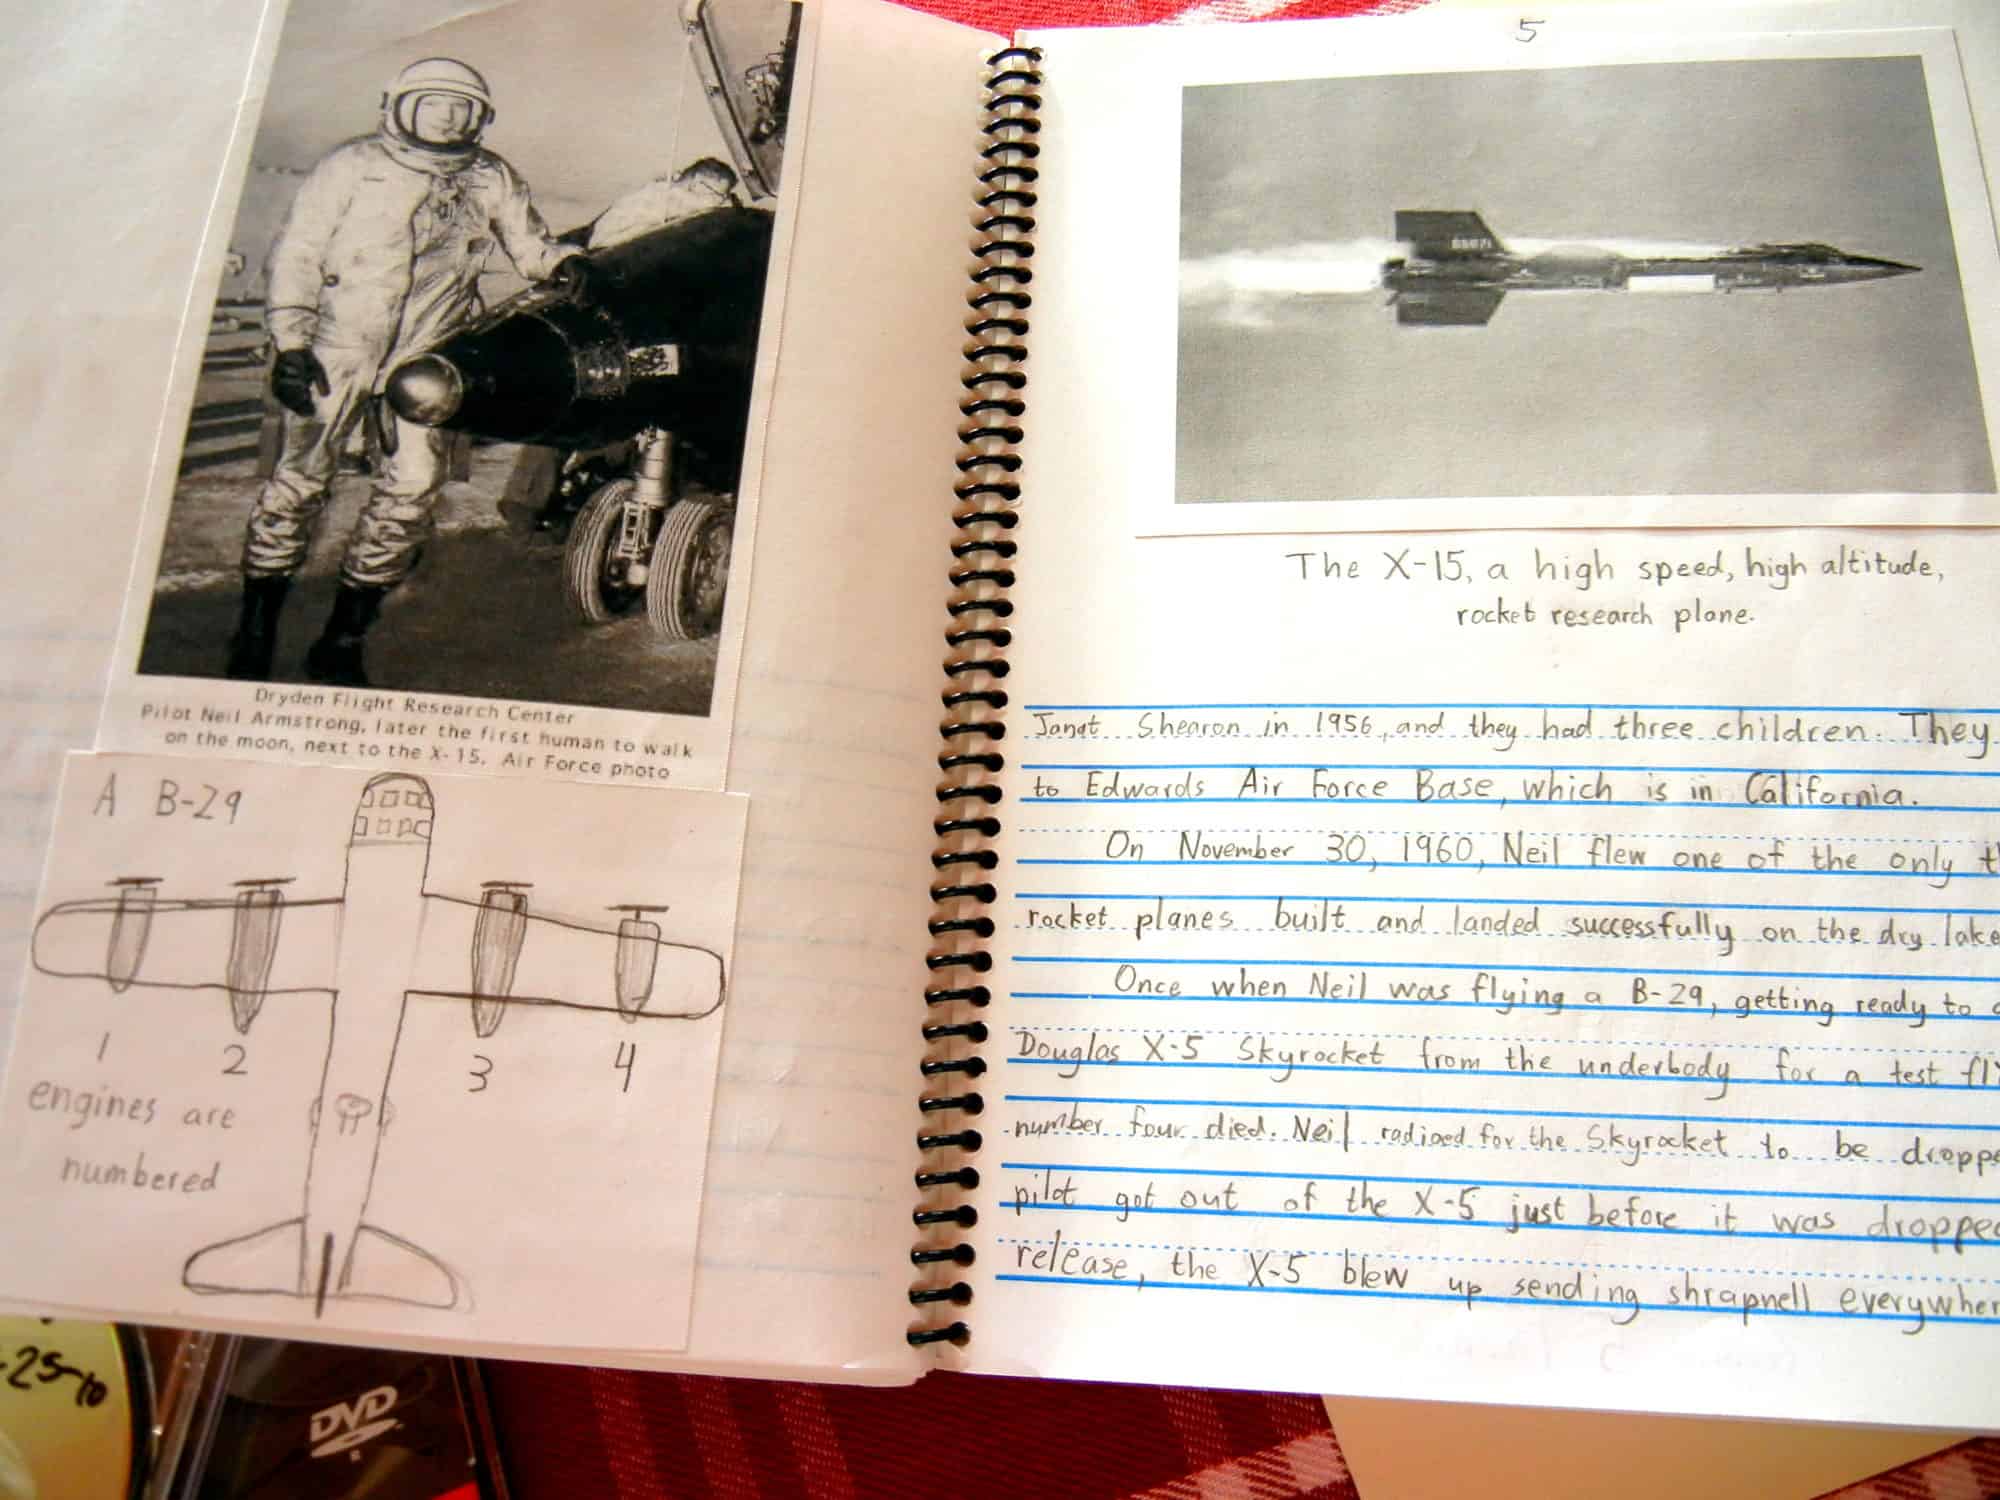 Dryden Flight Research Center
Pilot Neil Armstrong, later the first human to walk
on the moon, next to the X-15. Air Force photo
A B-29
1 2 3 4
engines are
numbered
-25-10
DVD
R
5
The X-15, a high speed, high altitude,
rocket research plane.
Janet Shearon in 1956, and they had three children. They
to Edwards Air Force Base, which is in California.
On November 30, 1960, Neil flew one of the only
rocket planes built and landed successfully on the dry lake
Once when Neil was flying a B-29, getting ready to
Douglas X-5 Skyrocket from the underbody for a test
number four died. Neil radioed for the Skyrocket to be
pilot got out of the X-5 just before it was dropped
release, the X-5 blew up sending shrapnell